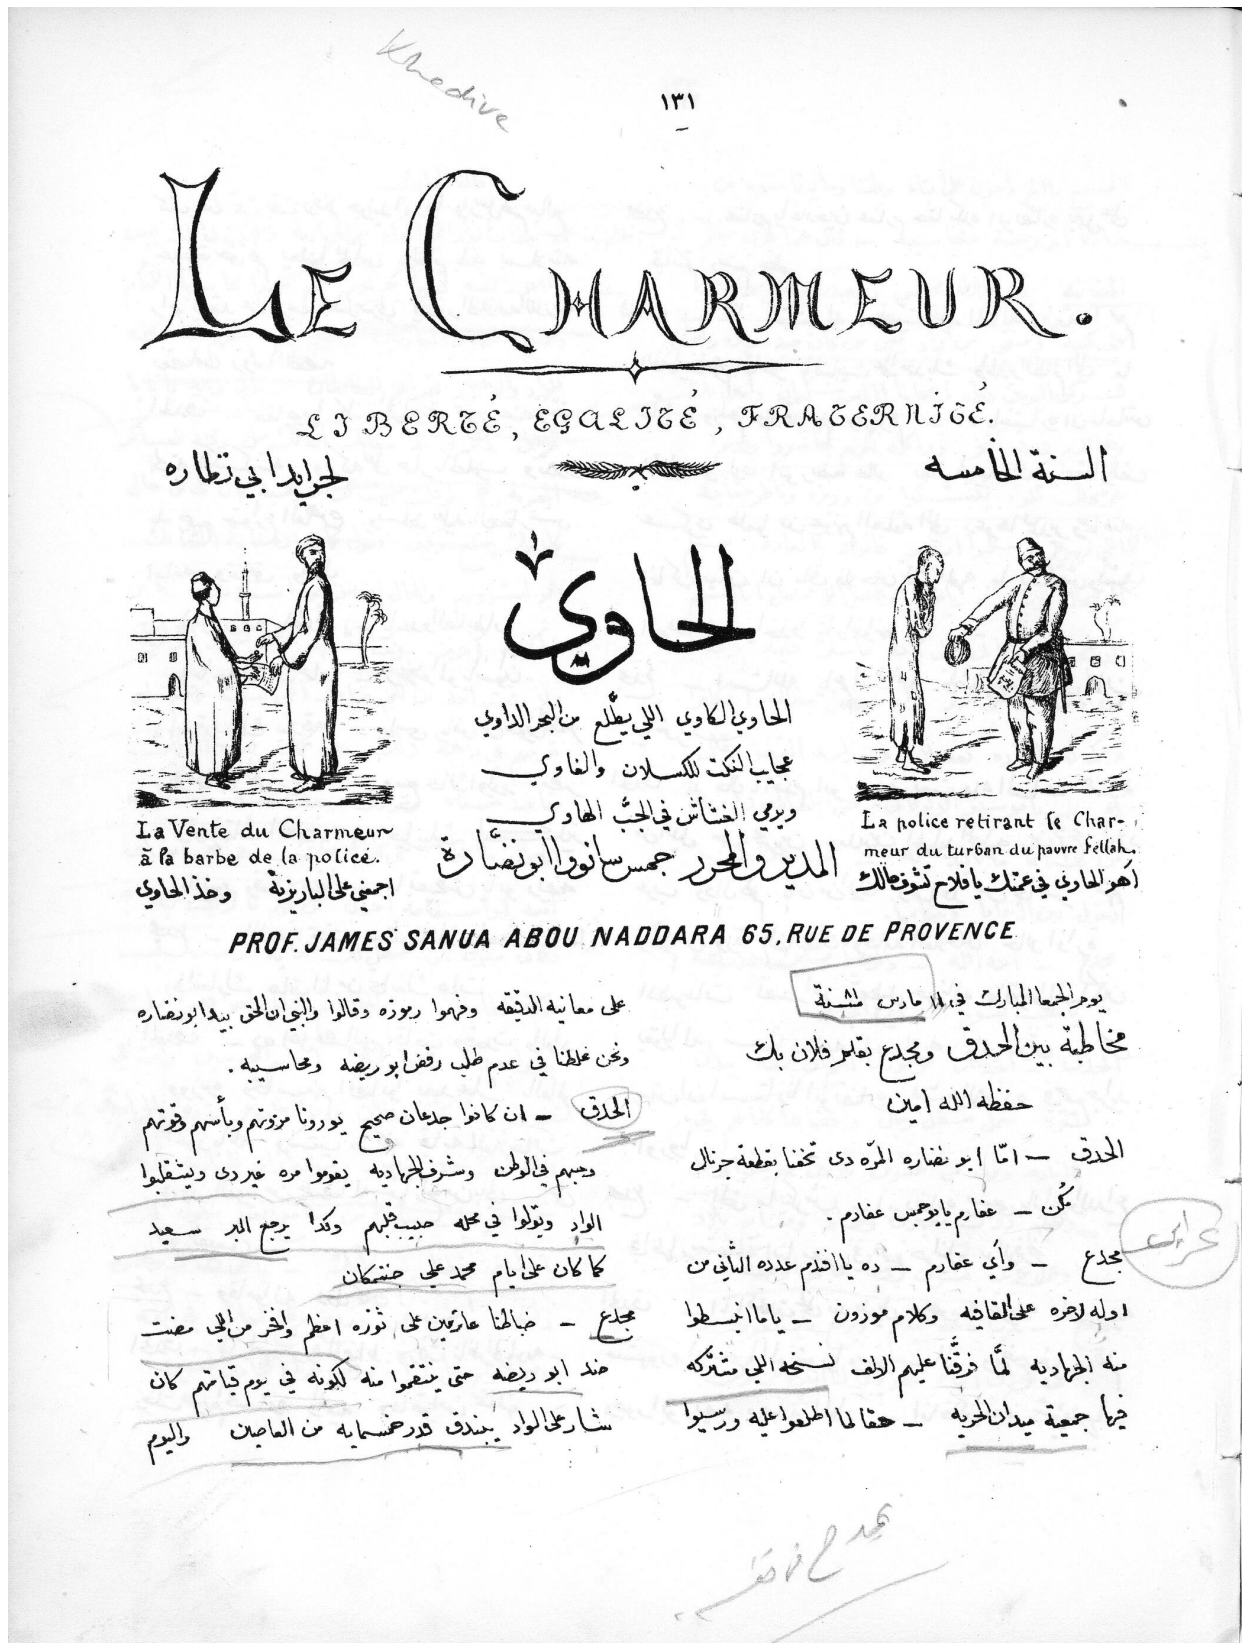 Khedive
١٣١
LE CHARMEUR.
LIBERTÉ, EGALITÉ, FRATERNITÉ.
السنة الخامسه
لجرايد ابي نظاره
الحاوي
الحاوي الكاوي اللي يطّلع من البحر الداوي
عجايب النكت للكسلان والغاوي
ويرمي الغشاش في الجبّ الهاوي
المدير والمحرر جمس سانووا ابو نضّارة
La Vente du Charmeur
à la barbe de la police.
اجمبني على الباريزية وخذ الحاوي
La police retirant le Char-
meur du turban du pauvre fellah.
اهو الحاوي في عمتك يا فلاح تشوف حالك
PROF. JAMES SANUA ABOU NADDARA 65, RUE DE PROVENCE
يوم الجمعا المبارك في ١١ مارس سنة ٨١
مخاطبة بين الحدق ومجدع بقلم فلان بك
حفظه الله امين
الحدق — امّا ابو نضاره المرّه دى تحفنا بقطعة جرنال
مُكن — عفارم يا بو جمس عفارم.
مجدع — وأي عفارم — ده يا افندم عدده الثاني من
اوله لاخره على القافيه وكلام موزون — ياما انبسطوا
منه الجهاديه لمّا فرقنا عليهم الالف نسخه اللي مشتركه
فيها جمعية ميدان الحريه — حقا لما اطلعوا عليه ورسيوا
على معانيه الدقيقه وفهموا رموزه وقالوا والنبي ان الحق بيد ابو نضاره
ونحن غلطنا في عدم طلب رفض ابو ريضه ومحاسيبه.
الحدق — ان كانوا جدعان صحيح يورونا مروتهم وبأسهم وقوتهم
وحبهم في الوطن وشرف الجهاديه يقوموا مره غير دى ويشقلبوا
الواد ويولوا في محله حبيب قلبهم وكدا يرجع البر سعيد
كما كان على ايام محمد علي جنتمكان
مجدع — ضباطنا عازمين على ثوره اعظم وافخر من اللي مضت
ضد ابو ريضه حتى ينتقموا منه لكونه في يوم قيامتهم كان
شار على الواد يبندق قدر خمسمايه من العاصيين واليوم